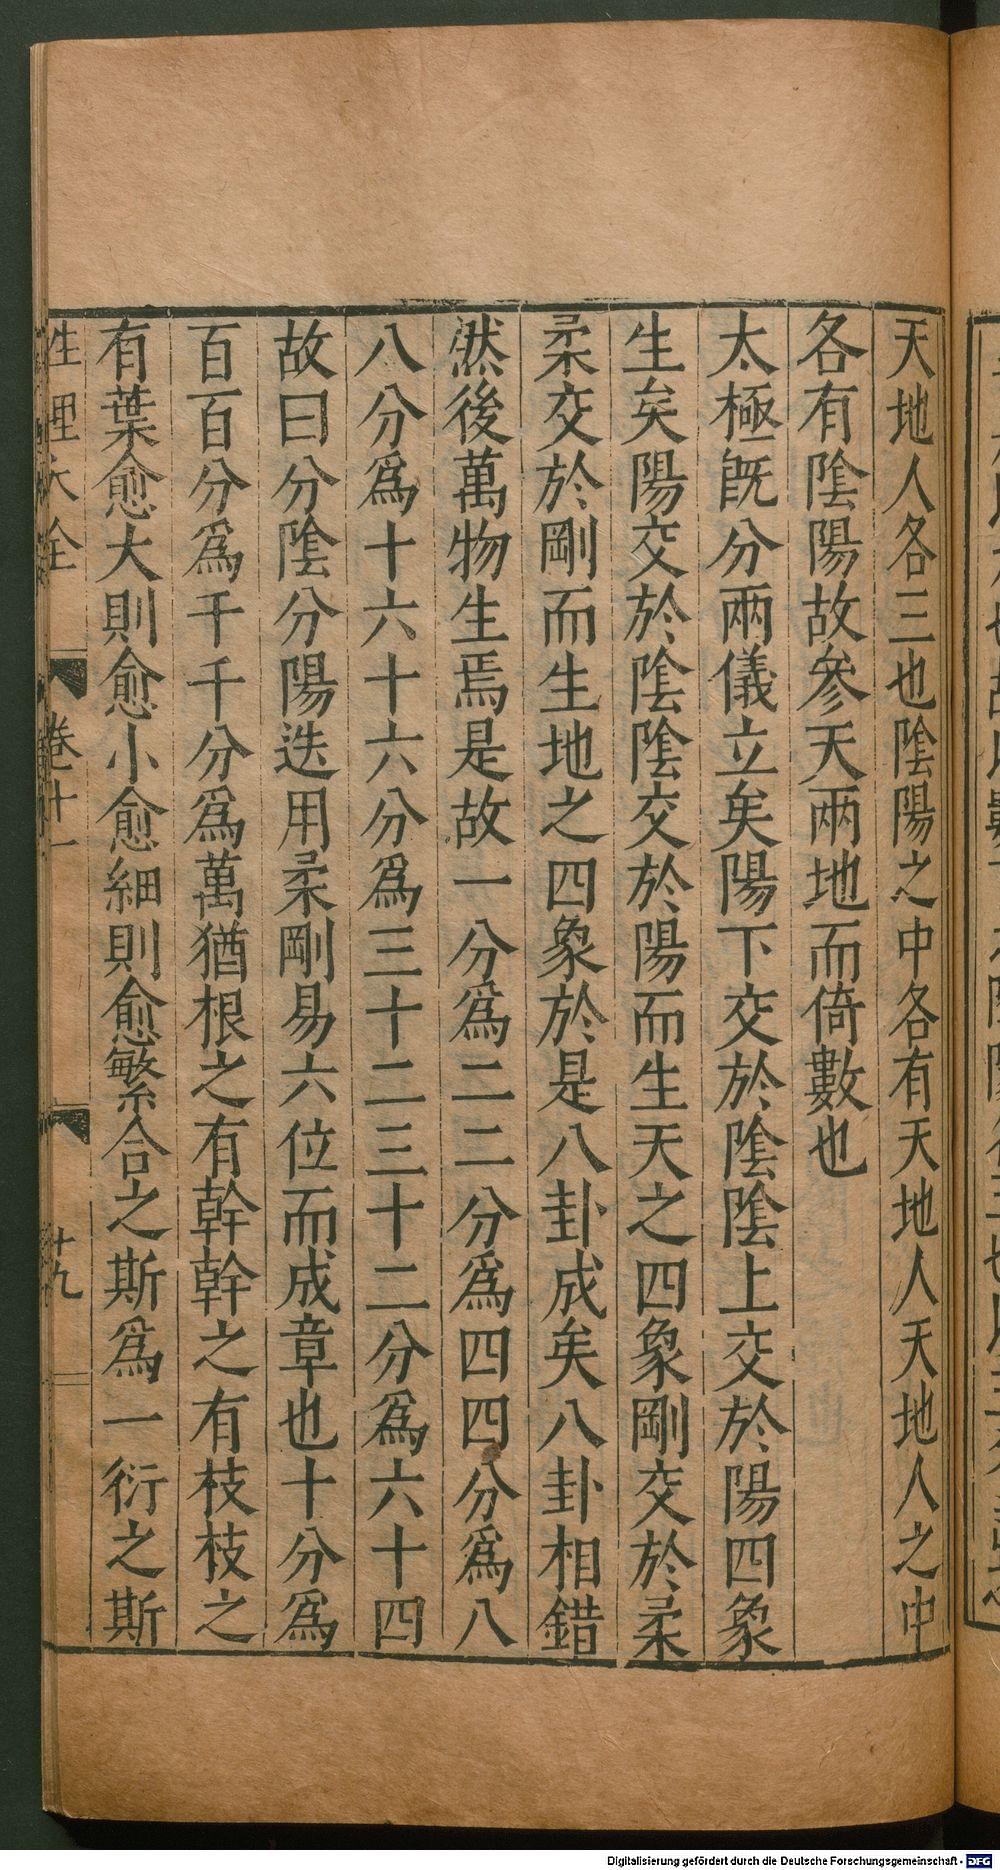 天地人各三也陰陽之中各有天地人天地人之中
各有陰陽故參天兩地而倚數也
太極旣分兩儀立矣陽下交於陰陰上交於陽四象
生矣陽交於陰陰交於陽而生天之四象剛交於柔
柔交於剛而生地之四象於是八卦成矣八卦相錯
然後萬物生焉是故一分爲二二分爲四四分爲八
八分爲十六十六分爲三十二三十二分爲六十四
故曰分陰分陽迭用柔剛易六位而成章也十分爲
百百分爲千千分爲萬猶根之有幹幹之有枝枝之
有葉愈大則愈小愈細則愈繁合之斯爲一衍之斯
性理大全 卷十一 十九
Digitalisierung gefördert durch die Deutsche Forschungsgemeinschaft - DFG